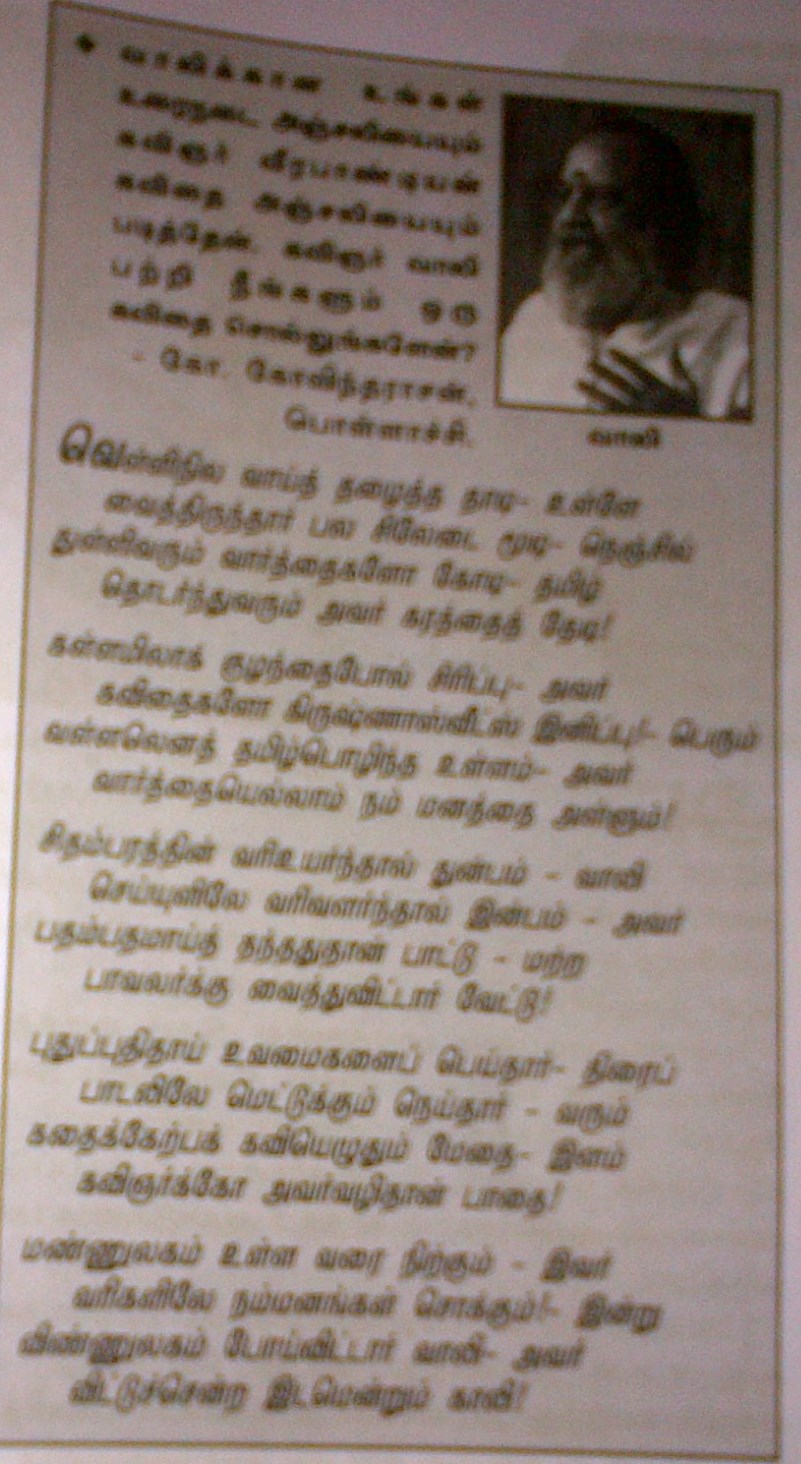 ♦ வாலிக்கான உங்கள்
உரைநடை அஞ்சலியையும்
கவிஞர் வீரபாண்டியன்
கவிதை அஞ்சலியையும்
படித்தேன். கவிஞர் வாலி
பற்றி நீங்களும் ஒரு
கவிதை சொல்லுங்களேன்?
- கோ. கோவிந்தராசன்,
பொள்ளாச்சி.
வாலி
வெள்ளிநில வாய்த் தழைத்த தாடி- உள்ளே
வைத்திருந்தார் பல சிலேடை மூடி- நெஞ்சில்
துள்ளிவரும் வார்த்தைகளோ கோடி- தமிழ்
தொடர்ந்துவரும் அவர் கரத்தைத் தேடி!
கள்ளமிலாக் குழந்தைபோல் சிரிப்பு- அவர்
கவிதைகளோ கிருஷ்ணாஸ்வீட்ஸ் இனிப்பு!- பெரும்
வள்ளலெனத் தமிழ்பொழிந்த உள்ளம்- அவர்
வார்த்தையெல்லாம் நம் மனத்தை அள்ளும்!
சிதம்பரத்தின் வரிஉயர்ந்தால் துன்பம் - வாலி
செய்யுளிலே வரிவளர்ந்தால் இன்பம் - அவர்
பதம்பதமாய்த் தந்ததுதான் பாட்டு - மற்ற
பாவலர்க்கு வைத்துவிட்டார் வேட்டு!
புதுப்புதிதாய் உவமைகளைப் பெய்தார்- திரைப்
பாடலிலே மெட்டுக்கும் நெய்தார் - வரும்
கதைக்கேற்பக் கவியெழுதும் மேதை- இளம்
கவிஞர்க்கோ அவர்வழிதான் பாதை!
மண்ணுலகம் உள்ள வரை நிற்கும் - இவர்
வரிகளிலே நம்மனங்கள் சொக்கும்!- இன்று
விண்ணுலகம் போய்விட்டார் வாலி- அவர்
விட்டுச்சென்ற இடமென்றும் காலி!